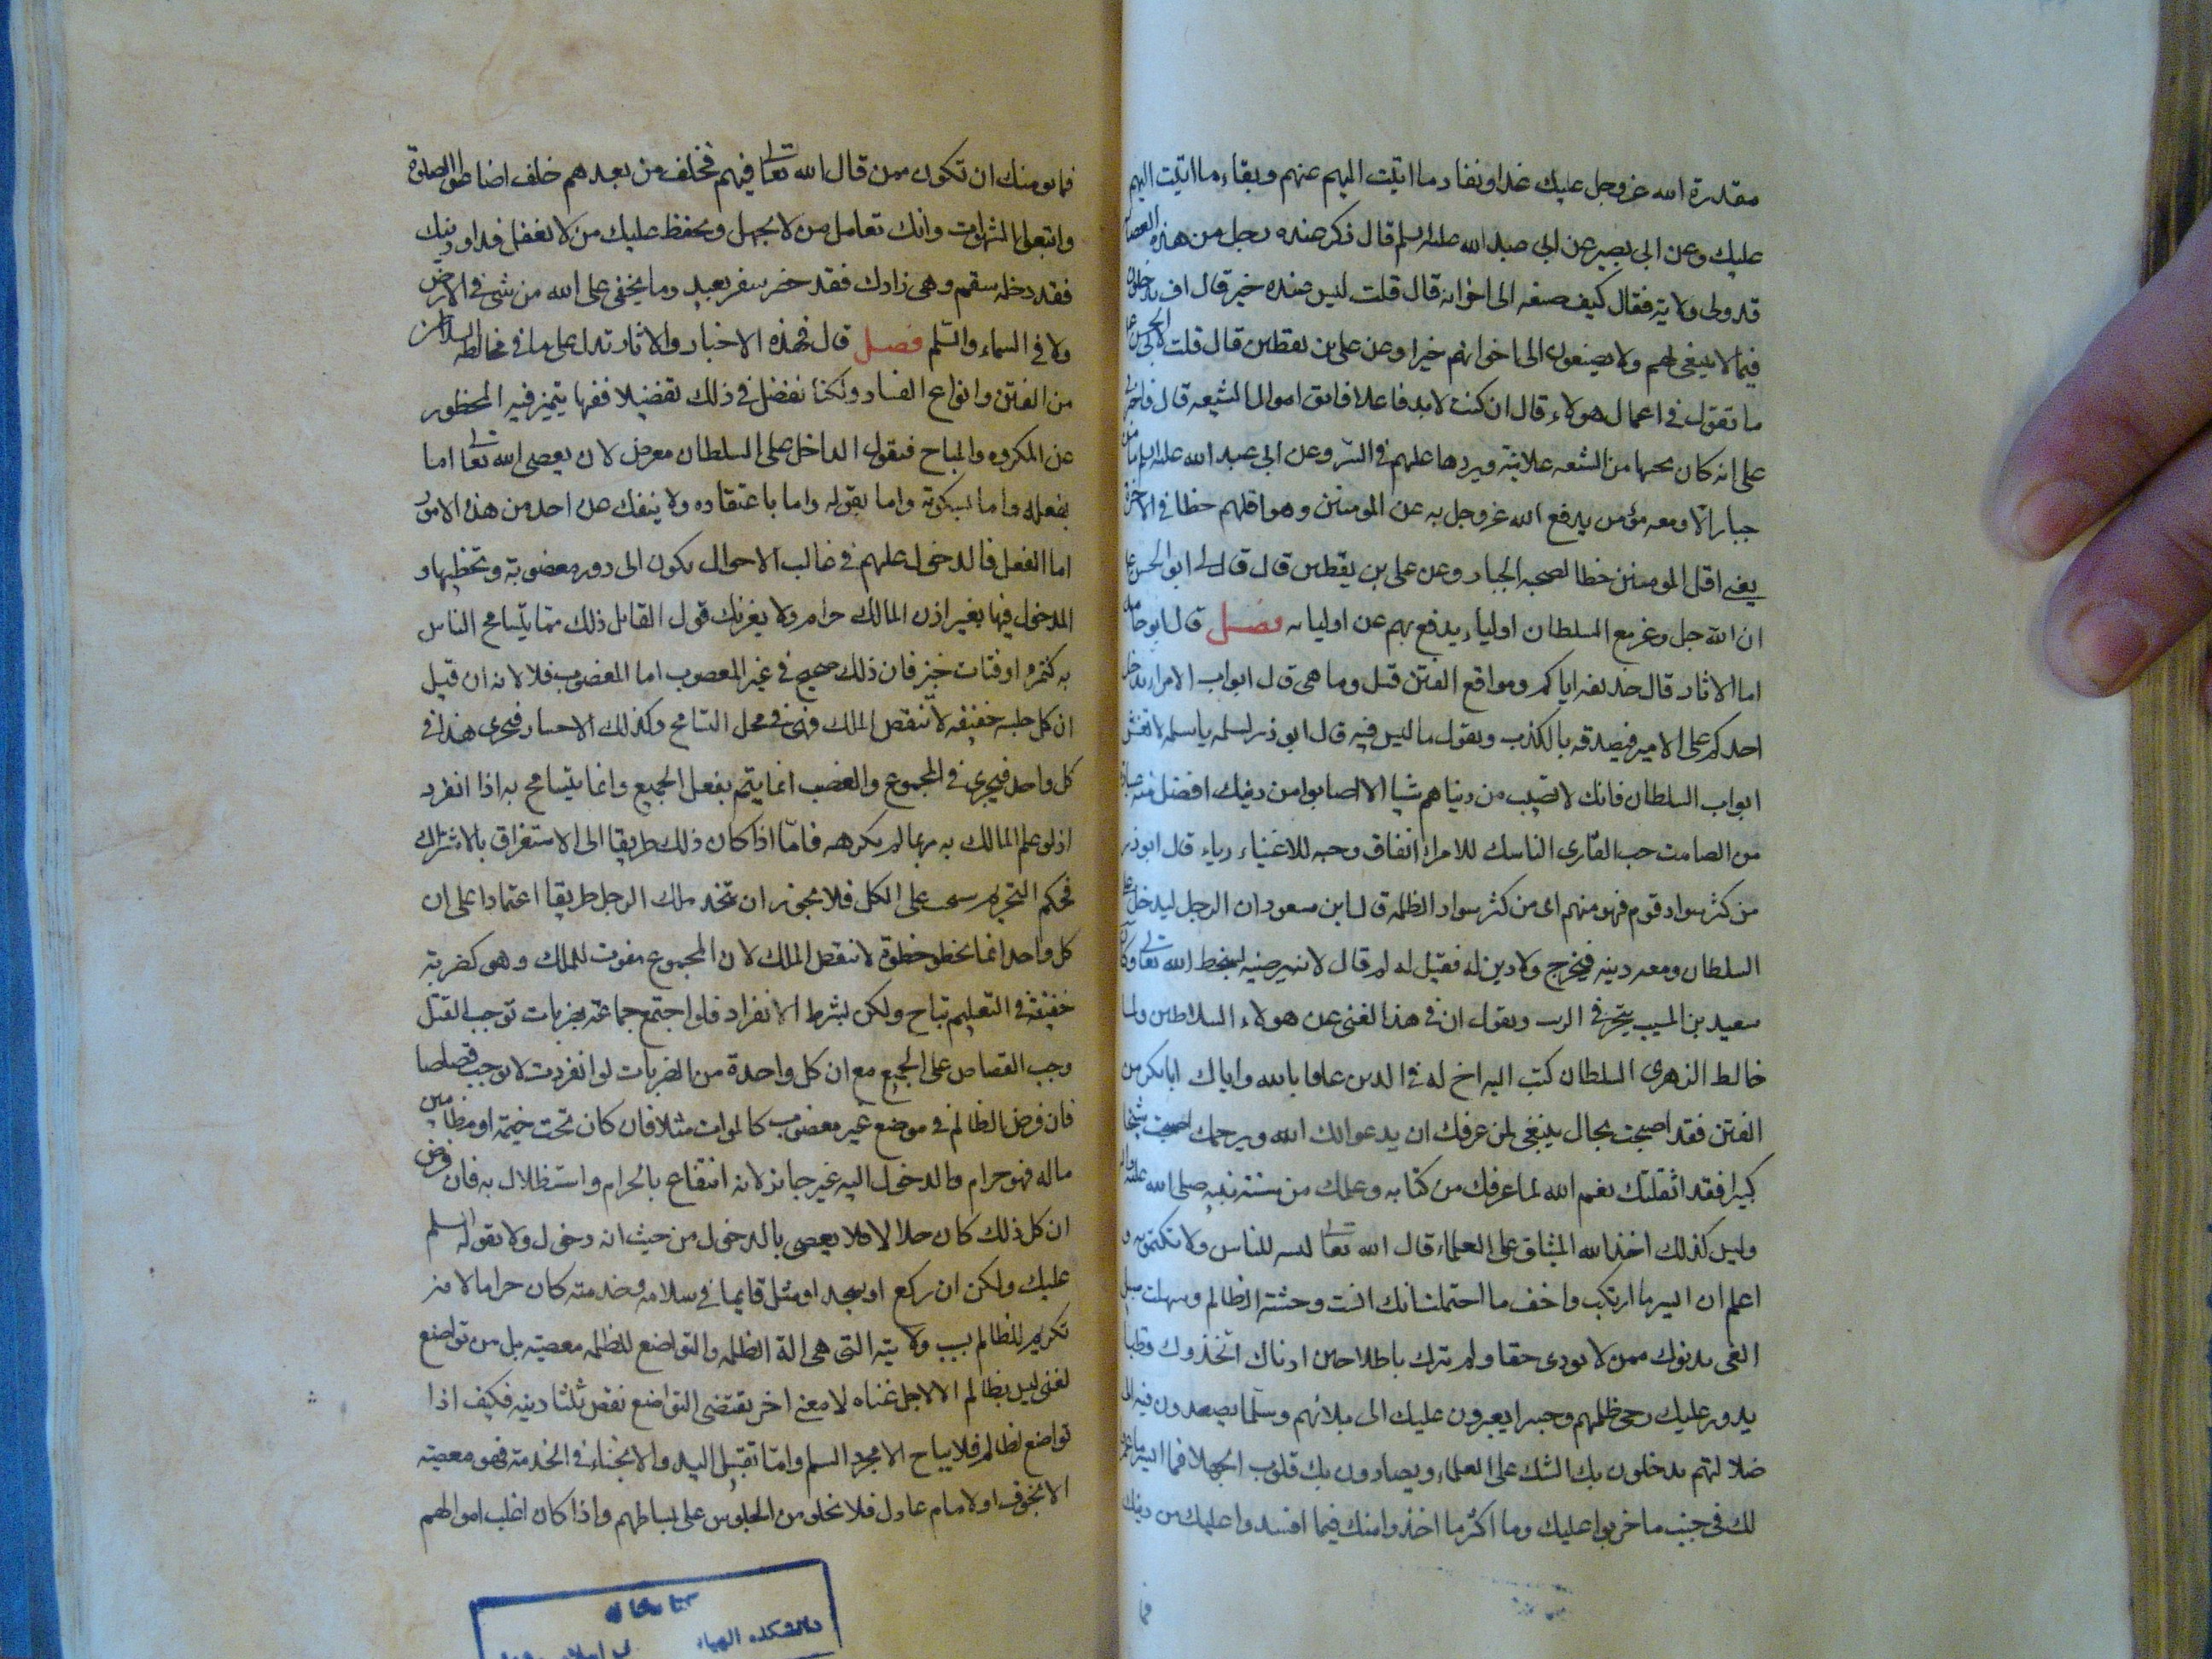 مقدرة الله عزوجل عليك غدا ونفاد ما اتيت اليهم عنهم وبقاء ما اتيت اليهم
عليك وعن ابي بصير عن ابي عبد الله عليه السلم قال ذكر عنده رجل من هذه العصابة
قد ولى ولاية فقال كيف صنعه الى اخوانه قال قلت ليس عنده خير قال اف يدخلون
فيما لا ينبغي لهم ولا يصنعون الى اخوانهم خيرا وعن علي بن يقطين قال قلت لابي الحسن ع
ما تقول في اعمال هولاء قال ان كنت لا بد فاعلا فاتق اموال الشيعه قال فاخبرني
علي انه كان يجبيها من الشيعه علانية ويردها عليهم في السر وعن ابي عبد الله عليه السلم ما من
جبار الا ومعه مؤمن يدفع الله عزوجل به عن المومنين وهو اقلهم حظا في الاخرة
يعني اقل المومنين حظا لصحبه الجبار وعن علي بن يقطين قال قال لي ابو الحسن ع
ان الله جل وعز مع السلطان اولياء يدفع بهم عن اوليائه فصل قال ابو حامد
اما الاثار قال حذيفه اياكم ومواقع الفتن قيل وما هي قال ابواب الامراء يدخل
احدكم على الامير فيصدقه بالكذب ويقول ما ليس فيه قال ابو ذر لسلمه يا سلمه لا تغش
ابواب السلطان فانك لا تصيب من دنياهم شيا الا اصابوا من دينك افضل منه عبادة
بن الصامت حب القاري الناسك للامراء نفاق وحبه للاغنياء رياء قال ابو ذر
من كثر سواد قوم فهو منهم اى من كثر سواد الظلمه قال ابن مسعود ان الرجل ليدخل على
السلطان ومعه دينه فيخرج ولا دين له فقيل له لم قال لانه يرضيه بسخط الله تعالى وكان
سعيد بن المسيب يتجر في الزيت ويقول ان في هذا لغنى عن هولاء السلاطين ولما
خالط الزهري السلطان كتب اليه اخ له في الدين عافانا الله واياك ابا بكر من
الفتن فقد اصبحت بحال ينبغي لمن عرفك ان يدعو لك الله ويرحمك اصبحت شيخا
كبيرا فقد اثقلتك نعم الله لما عرفك من كتابه وعلمك من سنة نبيه صلى الله عليه واله
وليس كذلك اخذ الله الميثاق على العلماء قال الله تعالى لتبيننه للناس ولا تكتمونه و
اعلم ان ايسر ما ارتكبت واخف ما احتملت انك انست وحشة الظالم وسهلت سبيل
الغي بدنوك ممن لا يودى حقا ولم يترك باطلا حين ادناك اتخذوك قطبا
يدور عليك رحى ظلمهم وجسرا يعبرون عليك الى بلائهم وسلما يصعدون فيه الى
ضلالتهم يدخلون بك الشك على العلماء ويصادون بك قلوب الجهلا فما ايسر ما عمروا
لك في جنب ما خربوا عليك وما اكثر ما اخذوا منك فيما افسدوا عليك من دينك
فما
فما يومنك ان تكون ممن قال الله تعالى فيهم فخلف من بعدهم خلف اضاعوا الصلوة
واتبعوا الشهوات وانك تعامل من لا يجهل ويحفظ عليك من لا يغفل فداو دينك
فقد دخله سقم وهي زادك فقد حضر سفر بعيد وما يخفى على الله من شئ في الارض
ولا في السماء والسلم فصل قال فهذه الاخبار والاثار تدل على ما في مخالطة السلاطين
من الفتن وانواع الفساد ولكنا نفصل في ذلك تفصيلا فقهيا يتميز فيه المحظور
عن المكروه والمباح فنقول الداخل على السلطان معرض لان يعصي الله تعالى اما
بفعله واما بسكوته واما بقوله واما باعتقاده ولا ينفك عن احد من هذه الامور
اما الفعل فالدخول عليهم في غالب الاحوال يكون الى دور مغصوبة وتخطيها و
الدخول فيها بغير اذن المالك حرام ولا يغرنك قول القايل ذلك مما يتسامح الناس
به كتمرة او فتات خبز فان ذلك صحيح في غير المغصوب اما المغصوب فلا لانه ان قيل
ان كل جلسه خفيفه لا تنقص الملك فهي في محل التسامح وكذلك الاجتياز فيجرى هذا في
كل واحد فيجرى في المجموع والغصب انما يتم بفعل الجميع وانما يتسامح به اذا انفرد
اذ لو علم المالك به ربما لم يكرهه فاما اذا كان ذلك طريقا الى الاستغراق بالاشتراك
فحكم التحريم ينسحب على الكل فلا يجوز ان يتخذ ملك الرجل طريقا اعتمادا على ان
كل واحد انما يخطو خطوة لا تنقص الملك لان المجموع مفوت للملك وهو كضربة
خفيفة في التعليم تباح ولكن بشرط الانفراد فلو اجتمع جماعة بضربات توجب القتل
وجب القصاص على الجميع مع ان كل واحدة من الضربات لو انفردت لا توجب قصاصا
فان فرض الظالم في موضع غير مغصوب كالموات مثلا فان كان تحت خيمة او مظلة من
ماله فهو حرام والدخول اليه غير جايز لانه انتفاع بالحرام واستظلال به فان فرض
ان كل ذلك كان حلالا فلا يعصى بالدخول من حيث انه دخول ولا بقوله السلم
عليك ولكن ان ركع او سجد او مثل قايما في سلامه وخدمته كان حراما لانه
تكريم للظالم بسبب ولايته التي هي الة الظلمه والتواضع للظلمه معصية بل من تواضع
لغني ليس بظالم الا لاجل غناه لا معنى اخر يقتضي التواضع نقص ثلثا دينه فكيف اذا
تواضع لظالم فلا يباح الا مجرد السلم واما تقبيل اليد والانحناء في الخدمة فهو معصية
الا بخوف او لامام عادل فلا يخلو من الجلوس على بساطهم واذا كان اغلب اموالهم
كتابخانه
دانشكده الهيات